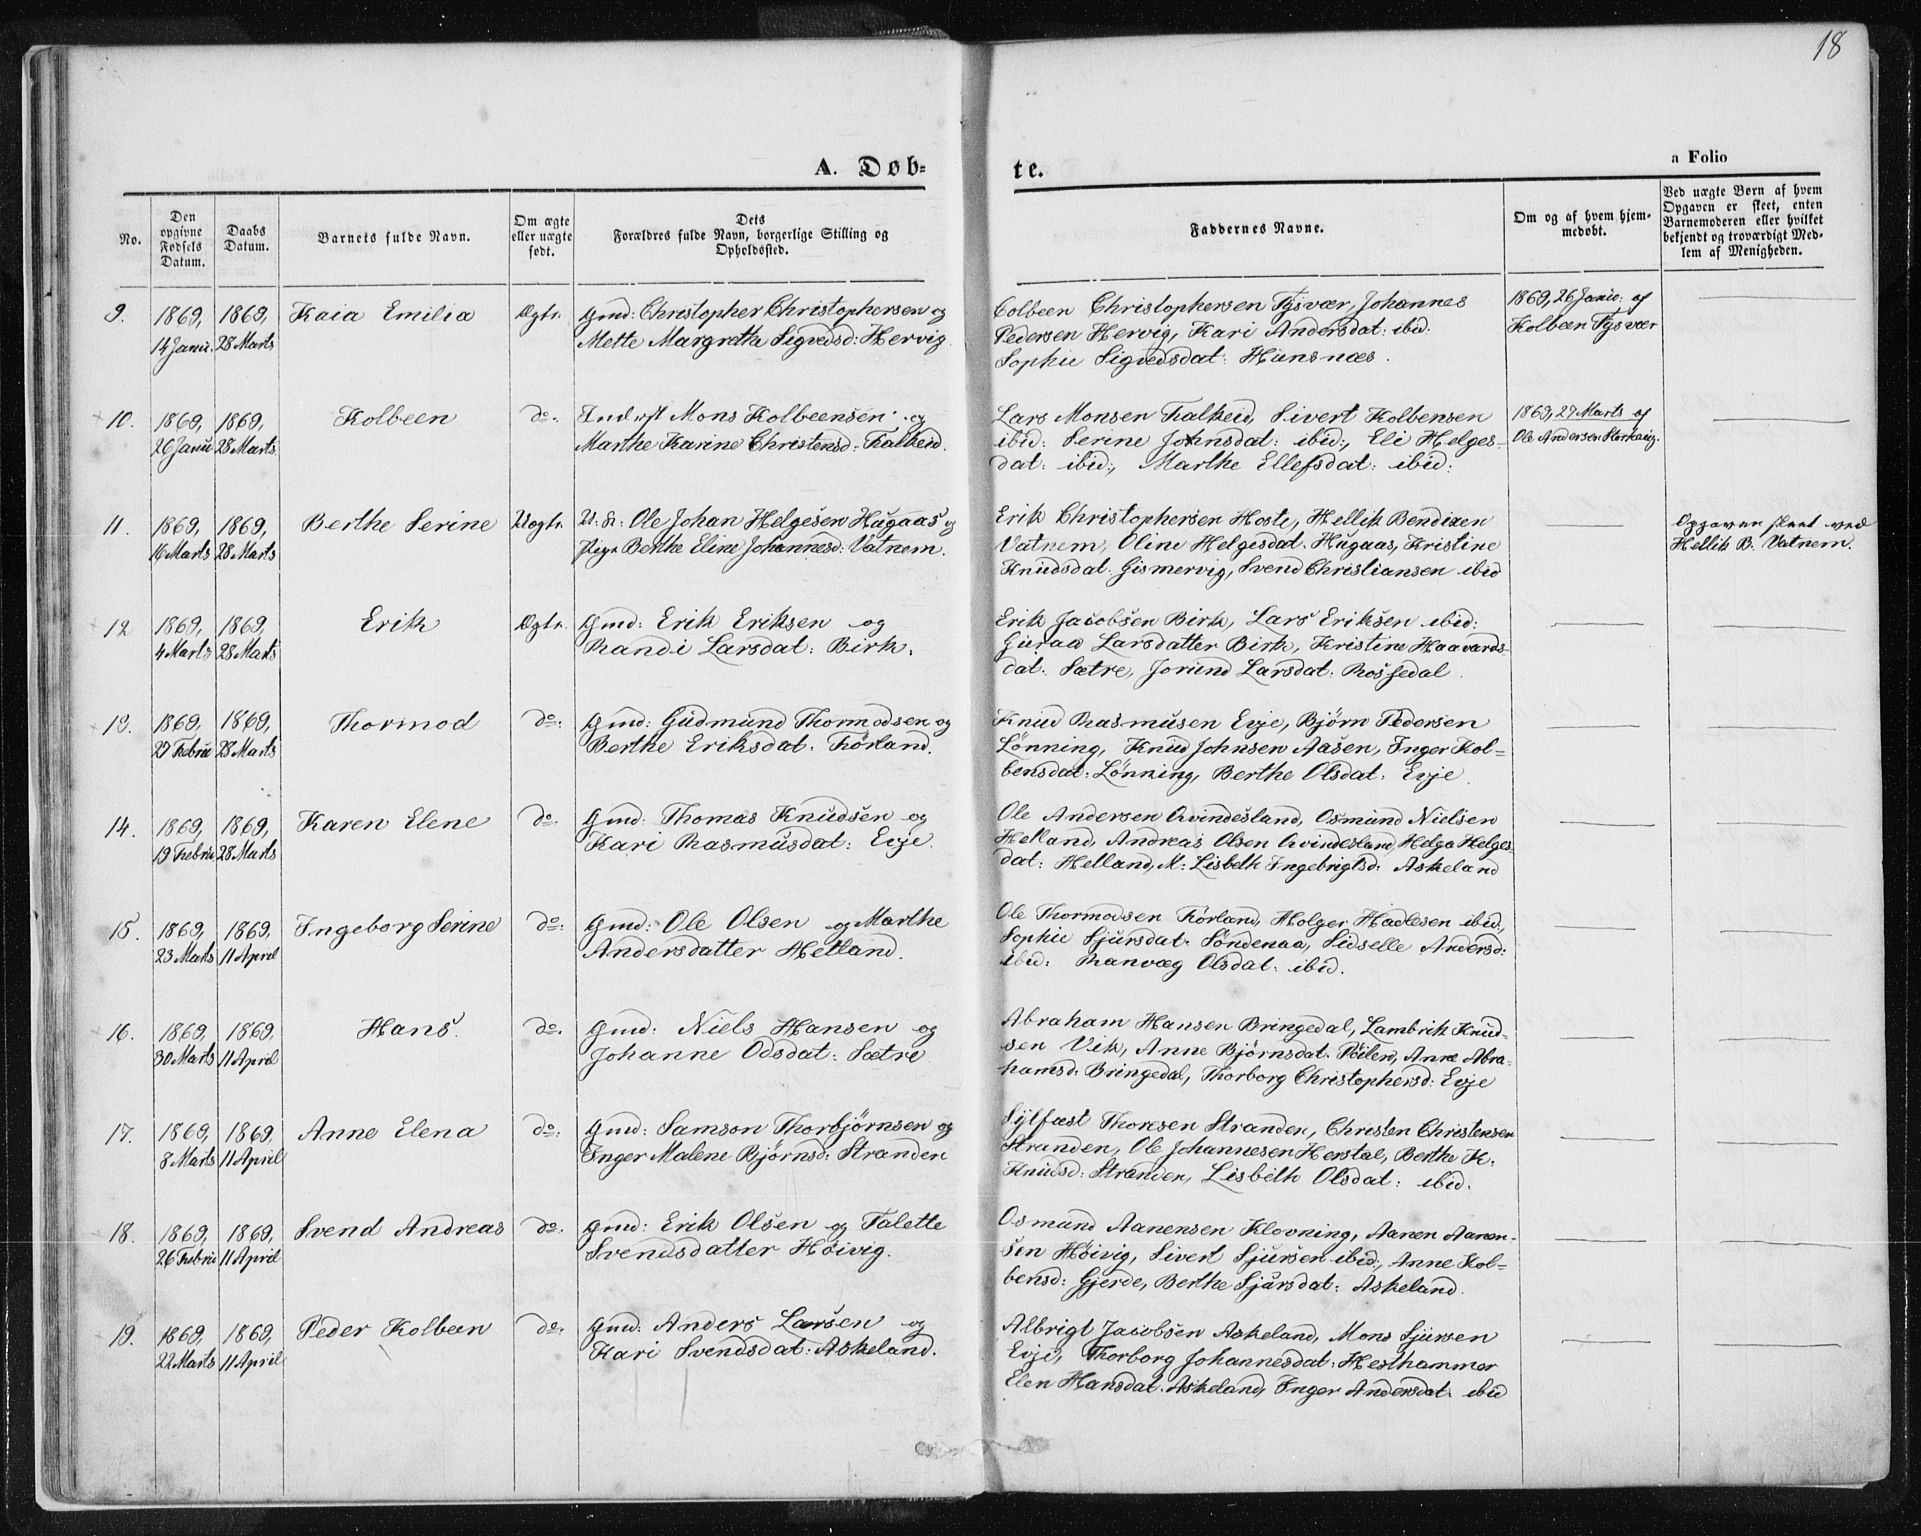 18
A. Døb-
te.
a Folio
No.
Den opgivne Fødsels Datum.
Daabs Datum.
Barnets fulde Navn.
Om ægte eller uægte født.
Dets Forældres fulde Navn, borgerlige Stilling og Opholdssted.
Faddernes Navne.
Om og af hvem hjemmedøbt.
Ved uægte Børn af hvem Opgaven er skeet, enten Barnemoderen eller hvilket bekjendt og troværdigt Medlem af Menigheden.
9. 1869, 14 Janu. 1869, 28 Marts Kaia Emilia Ægte.
Gmd: Christopher Christophersen og
Mette Margrethe Sigvedsd: Hervig
Colbeen Christophersen Tysvær, Johannes
Pedersen Hervig, Kari Andersdat: ibid:
Sophie Sigvedsdat: Hunsnæs.
1869, 26 Janu: af
Kolbeen Tysvær
10. 1869, 26 Janu 1869, 28 Marts Kolbeen do.
Inderst Mons Kolbeensen og
Marthe Karine Christensd: Falkeid.
Lars Monsen Falkeid, Sivert Kolbensen
ibid: Serine Johnsdat: ibid:, Eli Helges-
dat: ibid:, Marthe Ellefsdat: ibid:
1869, 27 Marts af
Ole Andersen Storhaug.
11. 1869, 16 Marts 1869, 28 Marts Berthe Serine Uægte.
U. K: Ole Johan Helgesen Hugaas og
Pige Berthe Eline Johannesd: Vatnem.
Erik Christophersen Hoste, Hellik Bendixen
Vatnem, Oline Helgesdat. Hugaas, Kristine
Knudsdat. Gismervig, Svend Christiansen ibid
Opgaven skeet ved
Hellik B. Vatnem.
12 1869, 4 Marts 1869, 28 Marts Erik Ægte.
Gmd: Erik Eriksen og
Randi Larsdat: Birk.
Erik Jacobsen Birk, Lars Eriksen ibid:
Guraa Larsdatter Birk, Kristine Haavards-
dat: Sætre, Jorund Larsdat: Rossedal.
13. 1869, 27 Febru 1869, 28 Marts Thormod do:
Gmd: Gudmund Thormodsen og
Berthe Eriksdat.Førland.
Knud Rasmusen Evje, Bjørn Pedersen
Lønning, Knud Johnsen Aasen, Inger Kol-
bensdat: Lønning, Berthe Olsdat: Evje.
14. 1869, 19 Febru 1869, 28 Marts Karen Elene do.
Gmd: Thomas Knudsen og
Kari Rasmusdat: Evje.
Ole Andersen Qvindesland, Osmund Nielsen
Helland, Andreas Olsen Qvindesland, Helga Helges-
dat: Helland, M: Lisbeth Ingebrigtsd: Askeland
15. 1869, 23 Marts 1869, 11 April Ingeborg Serine do:
Gmd: Ole Olsen og Marthe
Andersdatter Hetland.
Ole Thormodsen Førland, Holger Hadlesen ibid.,
Sophie Sjursdat. Søndenaa, Sidselle Andersd:
ibid: Ranvæg Olsdat: ibid.
16. 1869, 30 Marts 1869, 11 April Hans. do.
Gmd: Niels Hansen og
Johanne Odsdat: Sætre
Abraham Hansen Bringedal, Lambrik Knud-
sen Vik, Anne Bjørnsdat. Røilen, Anne Abra-
hamsd: Bringedal, Thorborg Christophersd: Evje
17. 1869, 8 Marts 1869, 11 April Anne Elena do:
Gmd: Samson Thorbjørnsen og
Inger Malene Bjørnsd: Stranden
Sylfæst Thoresen Stranden, Christen Christensen
Stranden, Ole Johannesen Herstal, Berthe K.
Knudsd: Stranden, Lisbeth Olsdat: ibid.
18. 1869, 26 Febru 1869, 11 April Svend Andreas do.
Gmd: Erik Olsen og Talette
Svendsdatter Høivig.
Osmund Aanensen Klovning, Aanen Aanen-
sen Høivig, Sivert Sjursen ibid:, Anne Kol-
bensd: Gjerde, Berthe Sjursdat: Askeland.
19. 1869, 22 Marts 1869, 11 April Peder Kolbeen do.
Gmd: Anders Larsen og
Kari Svendsdat: Askeland.
Albrigt Jacobsen Askeland, Mons Sjursen
Evje, Thorborg Johannesdat: Hesthammer
Elen Hansdat. Askeland, Inger Andersdat. ibid